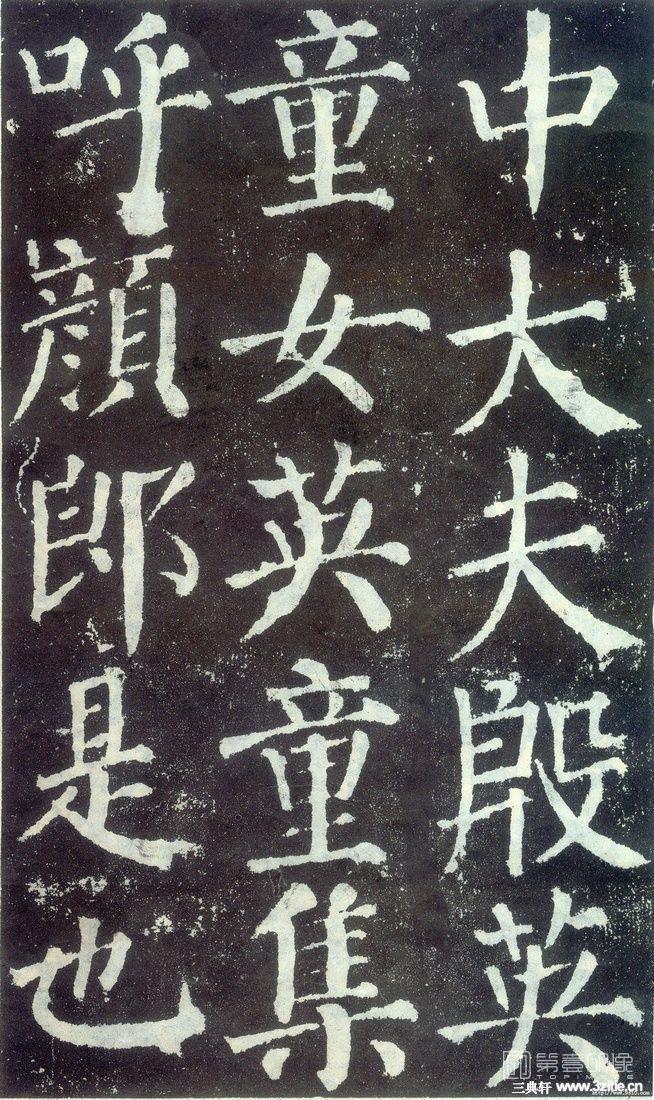 中大夫殷英
童女英童集
呼顔郎是也
第壹印象
三典轩 www.3zitie.cn